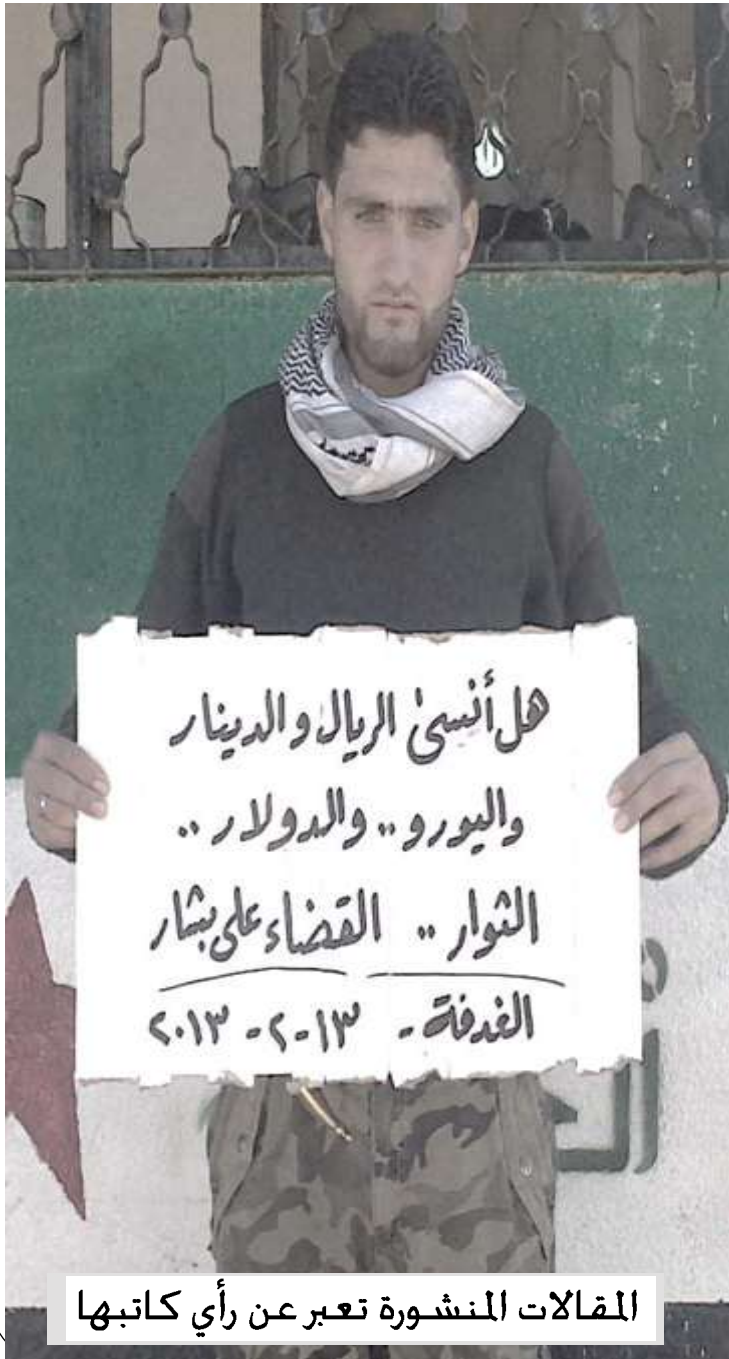 هل أنسىٰ الريال والدينار
واليورو .. والدولار ..
الثوار .. القضاء على بشار
الغدفة - ١٣-٢-٢٠١٣
المقالات المنشورة تعبر عن رأي كاتبها